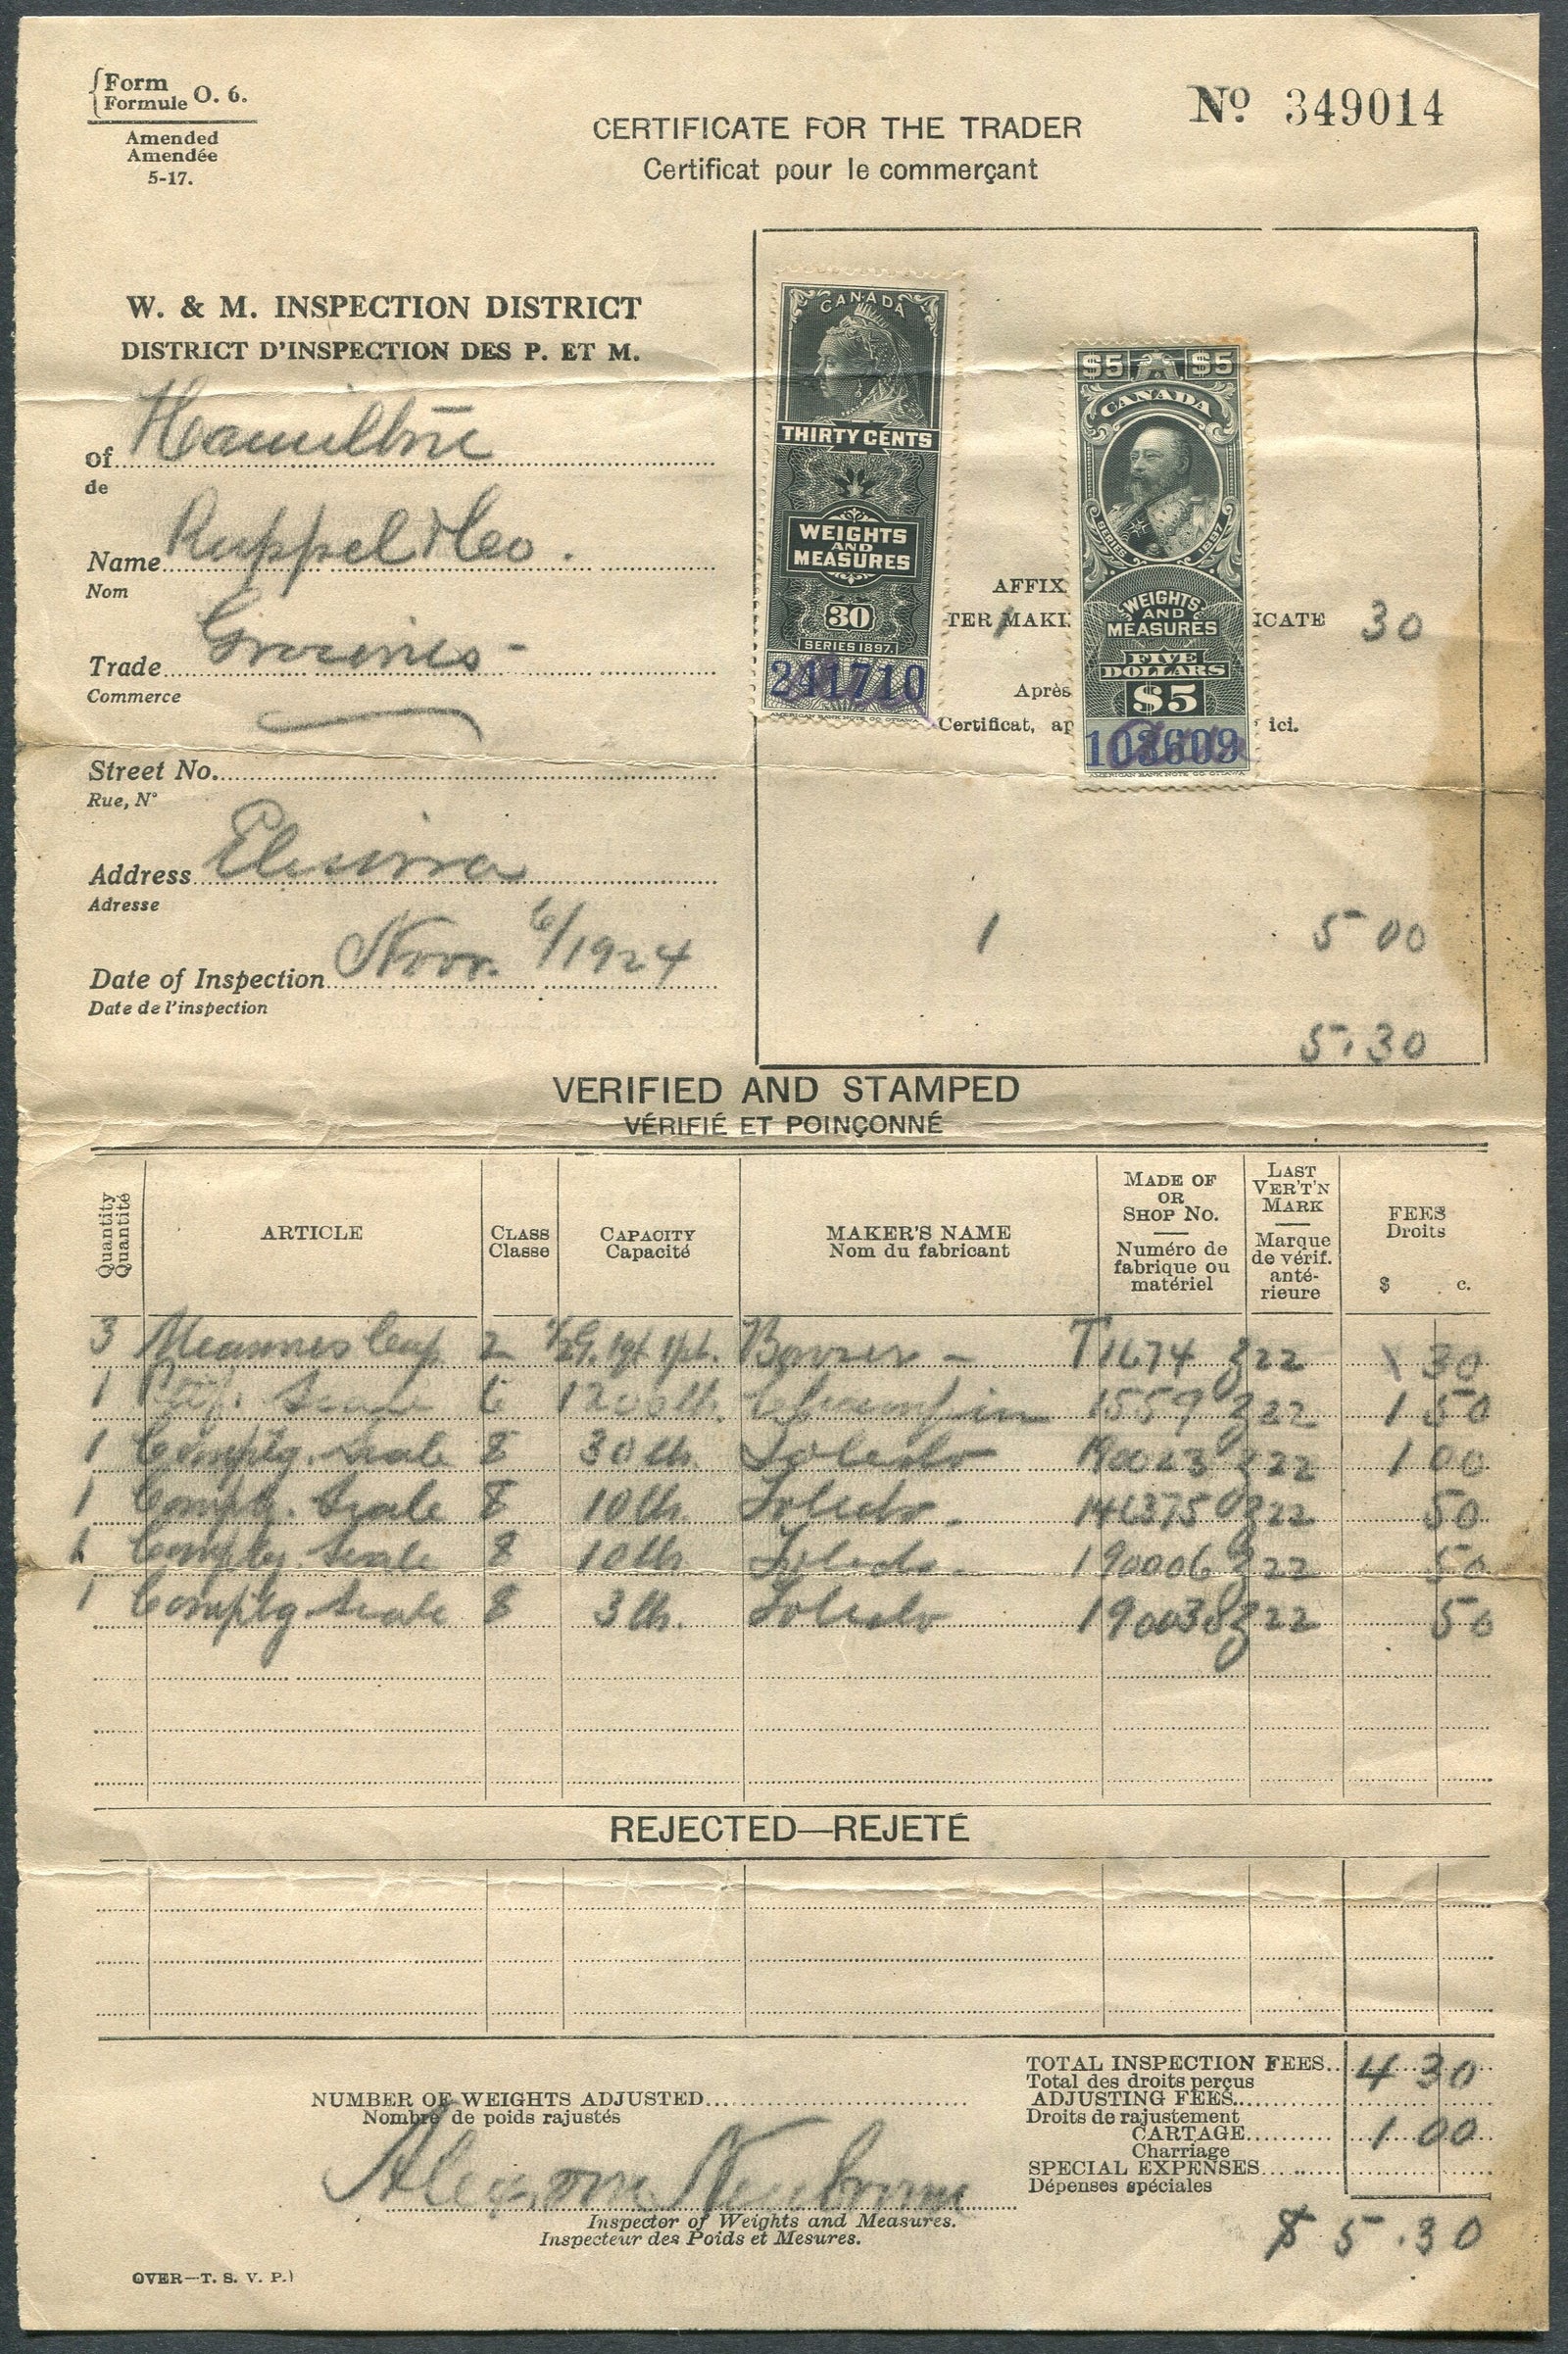 Form
Formule O. 6.
Amended
Amendée
5-17.
CERTIFICATE FOR THE TRADER
Certificat pour le commerçant
Nº 349014
W. & M. INSPECTION DISTRICT
DISTRICT D'INSPECTION DES P. ET M.
of Hamilton
de
Name Ruppel & Co.
Nom
Trade Groceries -
Commerce
Street No.
Rue, N°
Address Elmira
Adresse
Date of Inspection Nov. 6/1924
Date de l'inspection
CANADA
THIRTY CENTS
WEIGHTS
AND
MEASURES
30
SERIES 1897.
241710
AMERICAN BANK NOTE CO. OTTAWA
$5 $5
CANADA
SERIES 1897
WEIGHTS
AND
MEASURES
FIVE
DOLLARS
$5
103609
AMERICAN BANK NOTE CO. OTTAWA
AFFIX
TER MAKI ICATE 30
Après
Certificat, ap ici.
1 5 00
5.30
VERIFIED AND STAMPED
VÉRIFIÉ ET POINÇONNÉ
Quantity
Quantité
ARTICLE
CLASS
Classe
CAPACITY
Capacité
MAKER'S NAME
Nom du fabricant
MADE OF
OR
SHOP No.
Numéro de
fabrique ou
matériel
LAST
VER'T'N
MARK
Marque
de vérif.
anté-
rieure
FEES
Droits
$ c.
3 Measures 2 1/2 G. 1qt 1pt. Bowser - T1674 22 30
1 Scale 6 1200 lb. Champion 1559 22 1 50
1 Comptg. Scale 8 30 lb. Toledo 190023 22 1 00
1 Comptg. Scale 8 10 lb. Toledo. 146375 22 50
1 Comptg. Scale 8 10 lb. Toledo. 190006 22 50
1 Comptg. Scale 8 3 lb. Toledo 190038 22 50
REJECTED—REJETÉ
NUMBER OF WEIGHTS ADJUSTED
Nombre de poids rajustés
TOTAL INSPECTION FEES 4 30
Total des droits perçus
ADJUSTING FEES
Droits de rajustement
CARTAGE 1 00
Charriage
SPECIAL EXPENSES
Dépenses spéciales
$ 5.30
Inspector of Weights and Measures.
Inspecteur des Poids et Mesures.
OVER—T. S. V. P.)